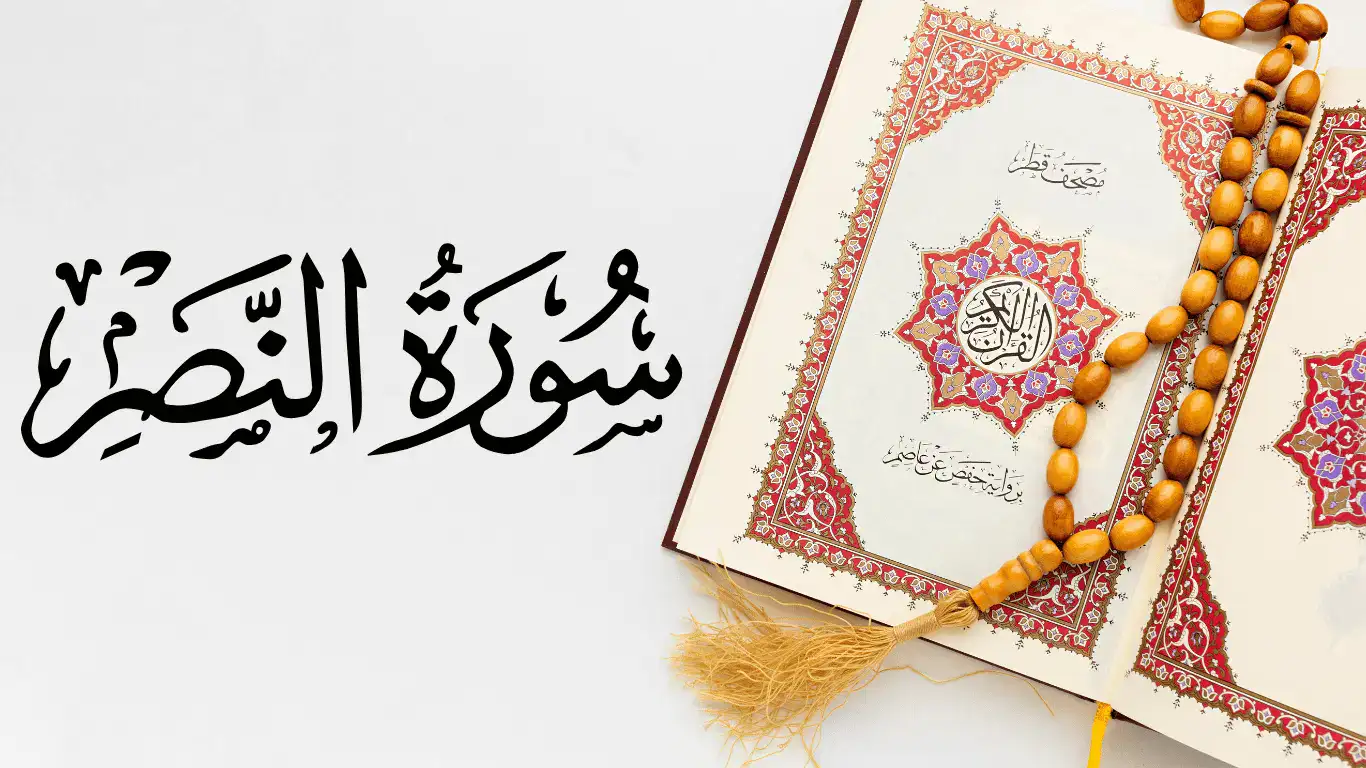 سُورَةُ النَّصْرِ
مُصْحَفُ قَطَر
القرآن الكريم
بروَاية حَفصَ عَنْ عَاصِم